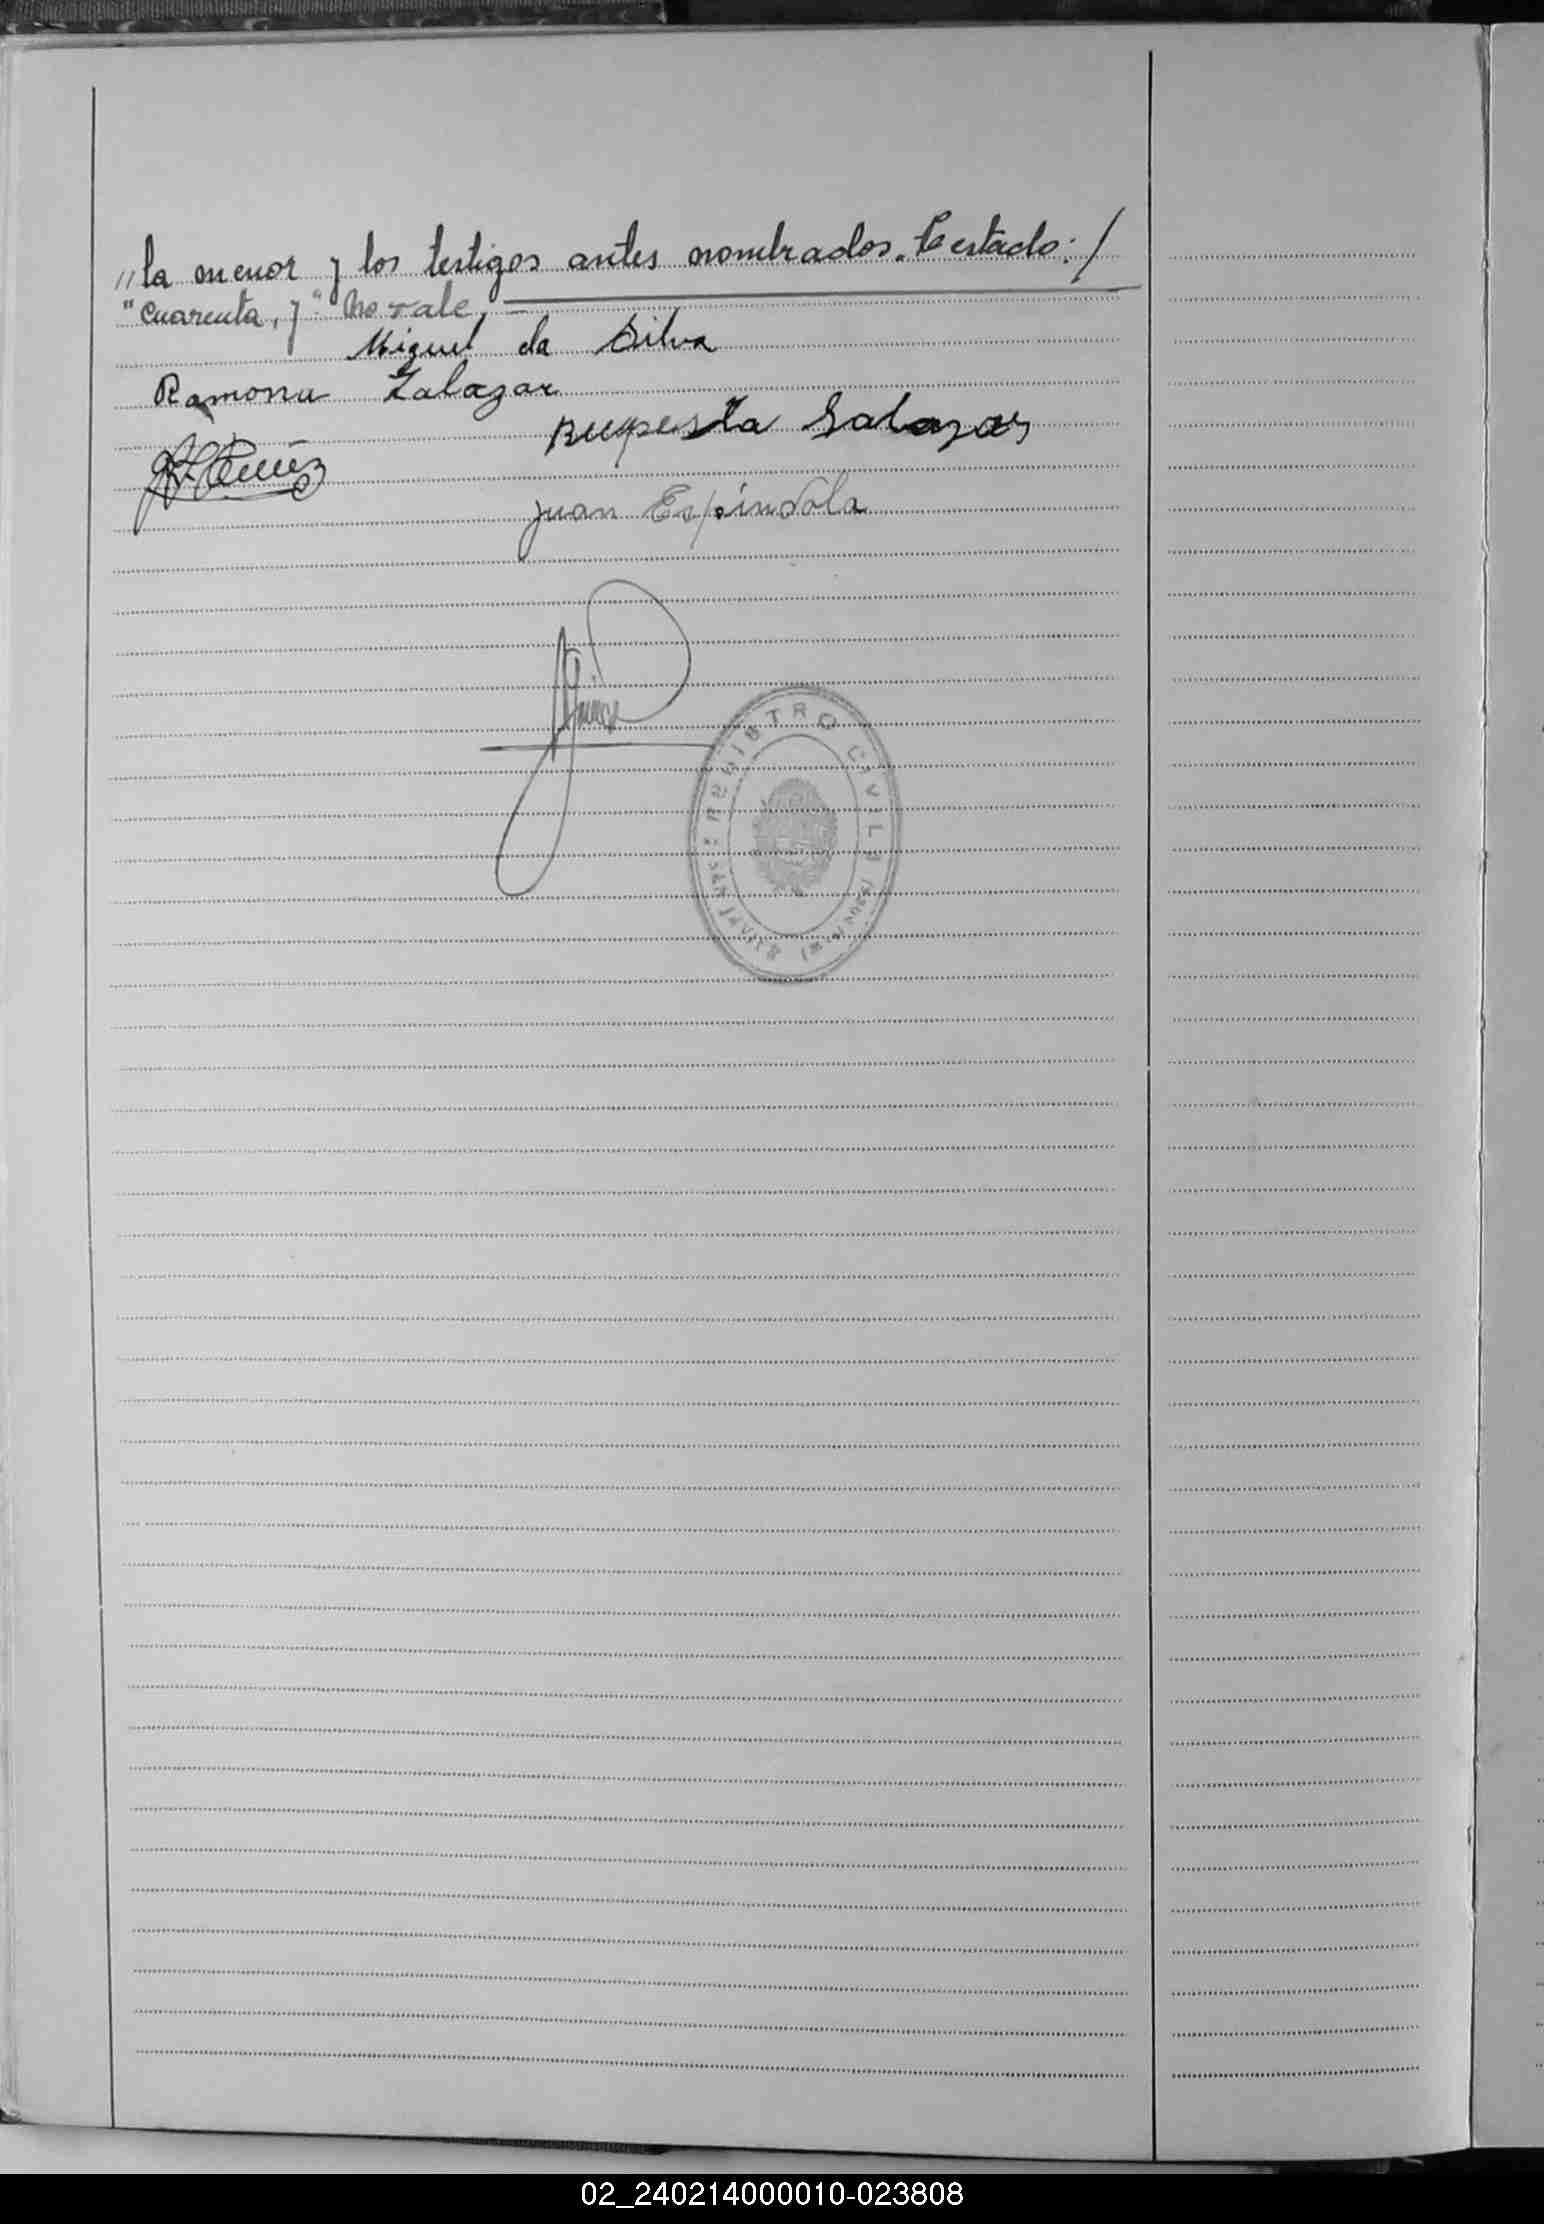 "la menor y los testigos antes nombrados. Testado: /
"cuarenta, y" No vale.
Miguel da Silva
Ramona Zalazar
Ruperta Salazar
Juan Espindola
REGISTRO CIVIL
02_240214000010-023808